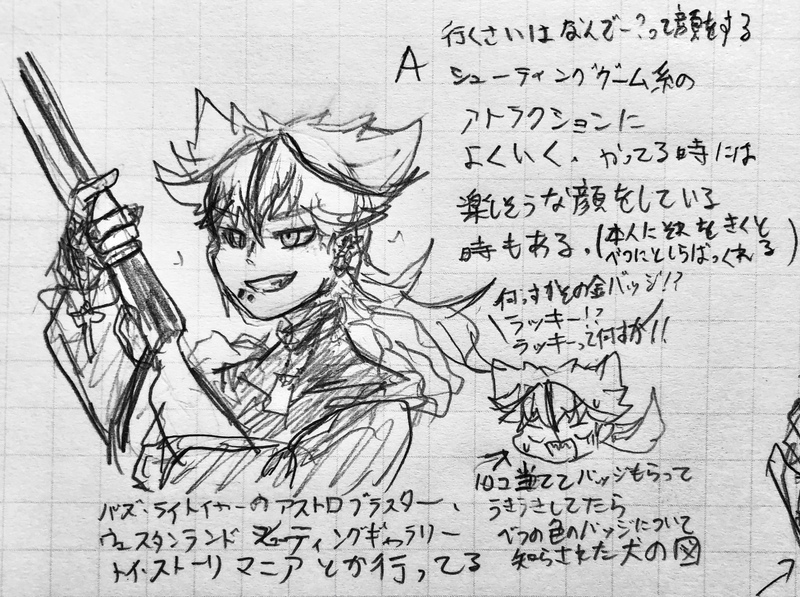 A
行くさいはなんでー?って顔をする
シューティングゲーム系の
アトラクションに
よくいく、かってる時には
楽しそうな顔をしている
時もある。(本人にそれをきくと
べつにとしらばっくれる)
何っすかその金バッジ!?
ラッキー!?
ラッキーって何すか!!
→
10コ当ててバッジもらって
うきうきしてたら
べつの色のバッジについて
知らされた犬の図
バズ・ライトイヤーのアストロブラスター、
ウェスタンランド シューティングギャラリー
トイ・ストーリマニアとか行ってる